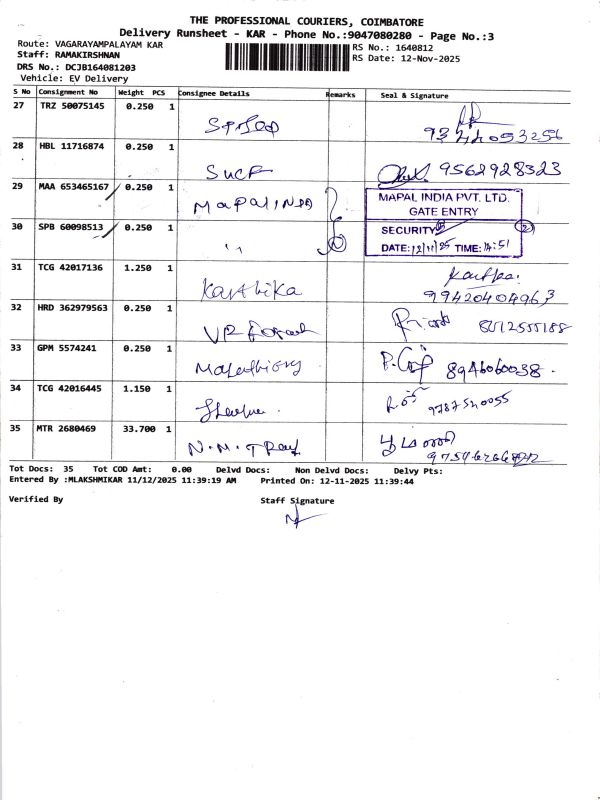 THE PROFESSIONAL COURIERS, COIMBATORE
Delivery Runsheet - KAR - Phone No.:9047080280 - Page No.:3
Route: VAGARAYAMPALAYAM KAR
RS No.: 1640812
Staff: RAMAKIRSHNAN
RS Date: 12-Nov-2025
DRS No.: DCJB164081203
Vehicle: EV Delivery
S No Consignment No Weight PCS Consignee Details Remarks Seal & Signature
27 TRZ 50075145 0.250 1
9344053256
28 HBL 11716874 0.250 1
9562928323
29 MAA 653465167 0.250 1 MAPAL INDIA
MAPAL INDIA PVT. LTD.
GATE ENTRY
30 SPB 60098513 0.250 1 "
SECURITY 2
DATE: 12/11/25 TIME: 14:51
31 TCG 42017136 1.250 1 Karthika
99420404963
32 HRD 362979563 0.250 1
33 GPM 5574241 0.250 1
8946060038.
34 TCG 42016445 1.150 1
9787540055
35 MTR 2680469 33.700 1
Tot Docs: 35 Tot COD Amt: 0.00 Delvd Docs: Non Delvd Docs: Delvy Pts:
Entered By :MLAKSHMIKAR 11/12/2025 11:39:19 AM Printed On: 12-11-2025 11:39:44
Verified By Staff Signature